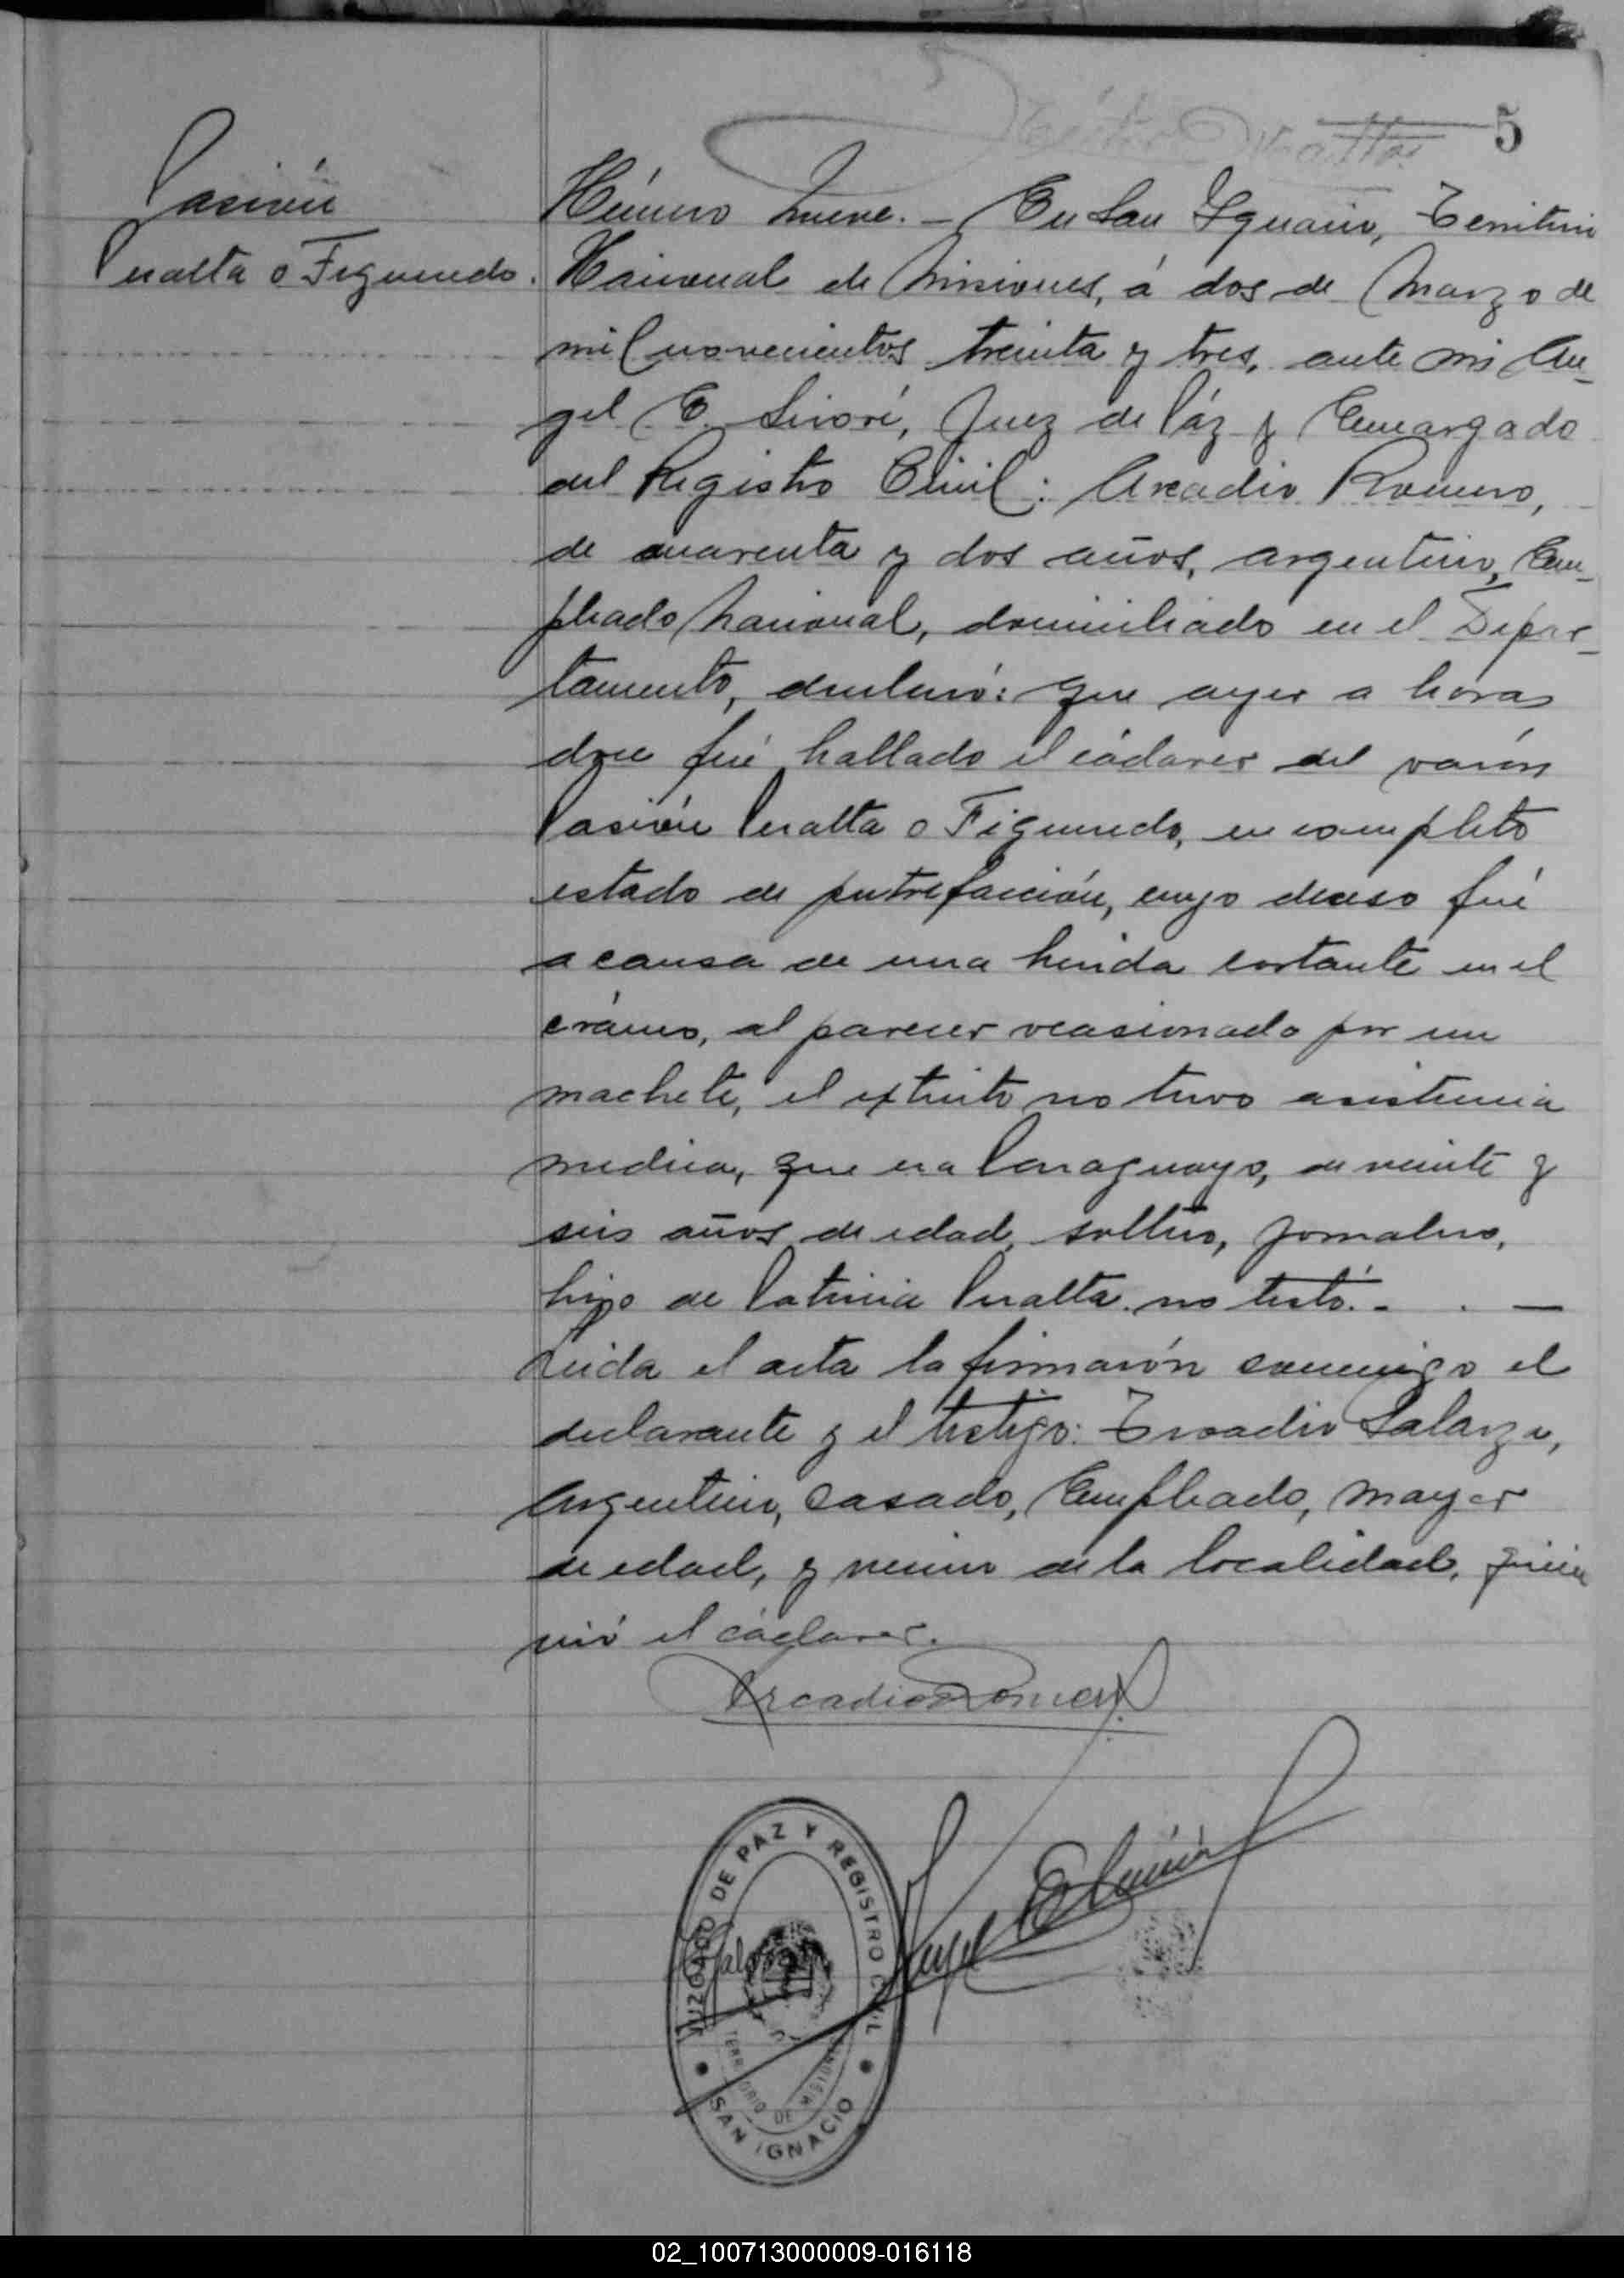 5
Pasión
Peralta o Figueredo.
Número nueve. — En San Ignacio, Territorio
Nacional de Misiones, á dos de Marzo de
mil novecientos treinta y tres, ante mi An-
gel E. Sivori, Juez de Páz y Encargado
del Registro Civil: Arcadio Romero,
de cuarenta y dos años, argentino, Em-
pleado Nacional, domiciliado en el Depar-
tamento, declaró: Que ayer a horas
doce fué hallado el cádaver del varón
Pasión Peralta o Figueredo, en completo
estado de putrefacción, cuyo deceso fué
a causa de una herida cortante en el
cráneo, al parecer ocasionado por un
machete, el extinto no tuvo asistencia
medica, que era Paraguayo, de veinte y
seis años de edad, soltero, jornalero,
hijo de Patricia Peralta. no testó. - . —
Leida el acta la firmarón conmigo el
declarante y el testigo: Troadio Salazar,
Argentino, casado, Empleado, mayor
de edad, y vecino de la localidad, quien
vió el cádaver.
Arcadio Romero
Angel E. Sivori
JUZGADO DE PAZ Y REGISTRO CIVIL
TERRITORIO DE MISIONES
SAN IGNACIO
02_100713000009-016118